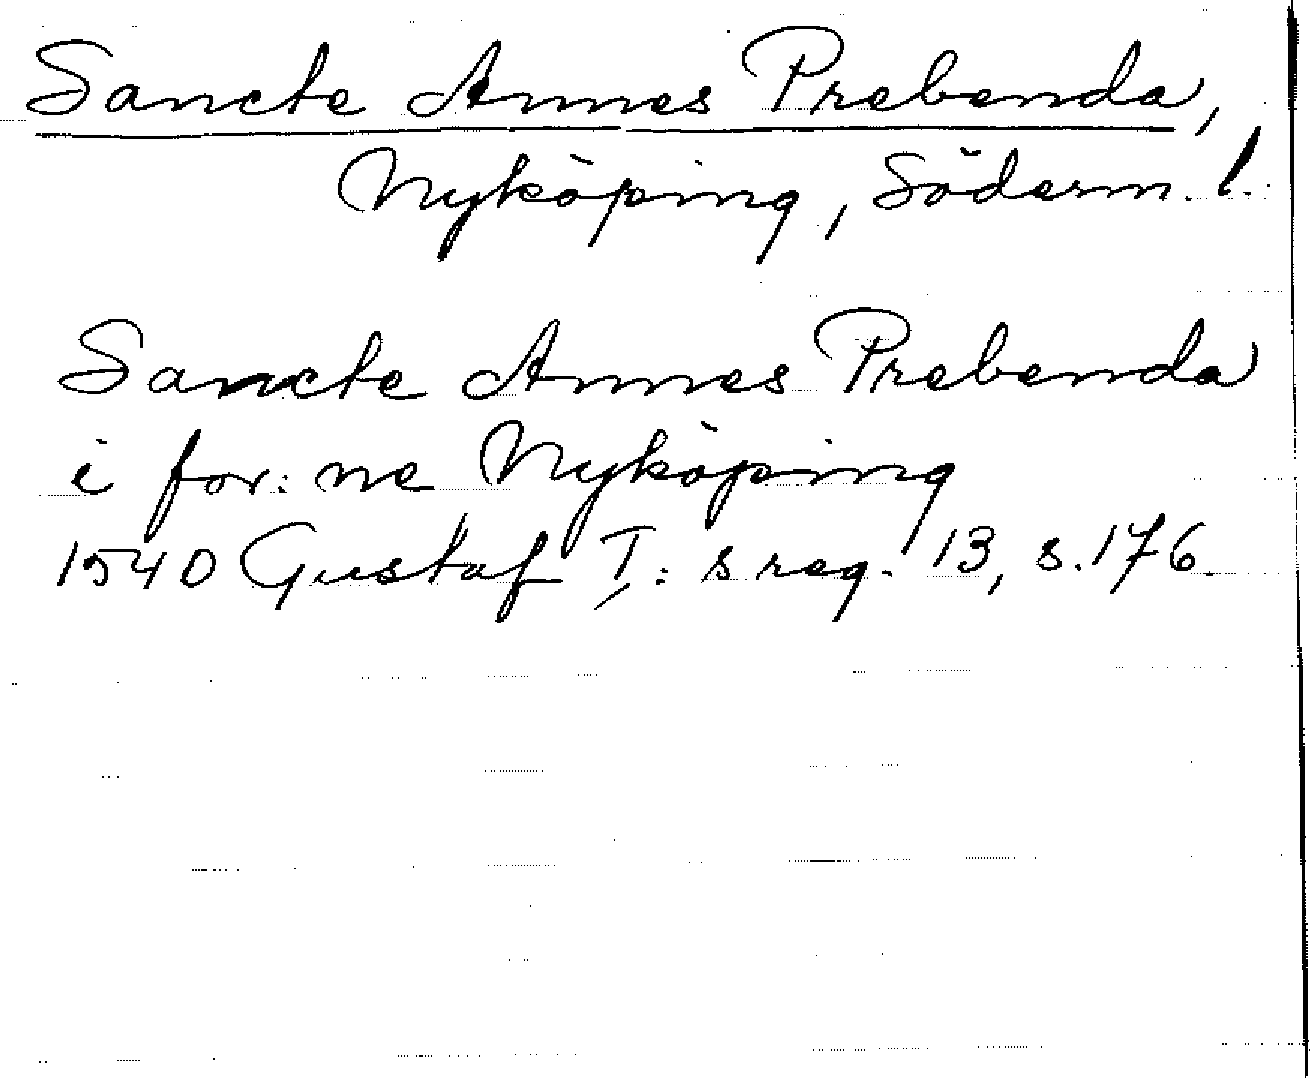 Sancte Annes Prebenda,
Nyköping, Söderm. l.
Sancte Annes Prebenda
i for: ne Nyköping
1540 Gustaf I: s reg. 13, s. 176.